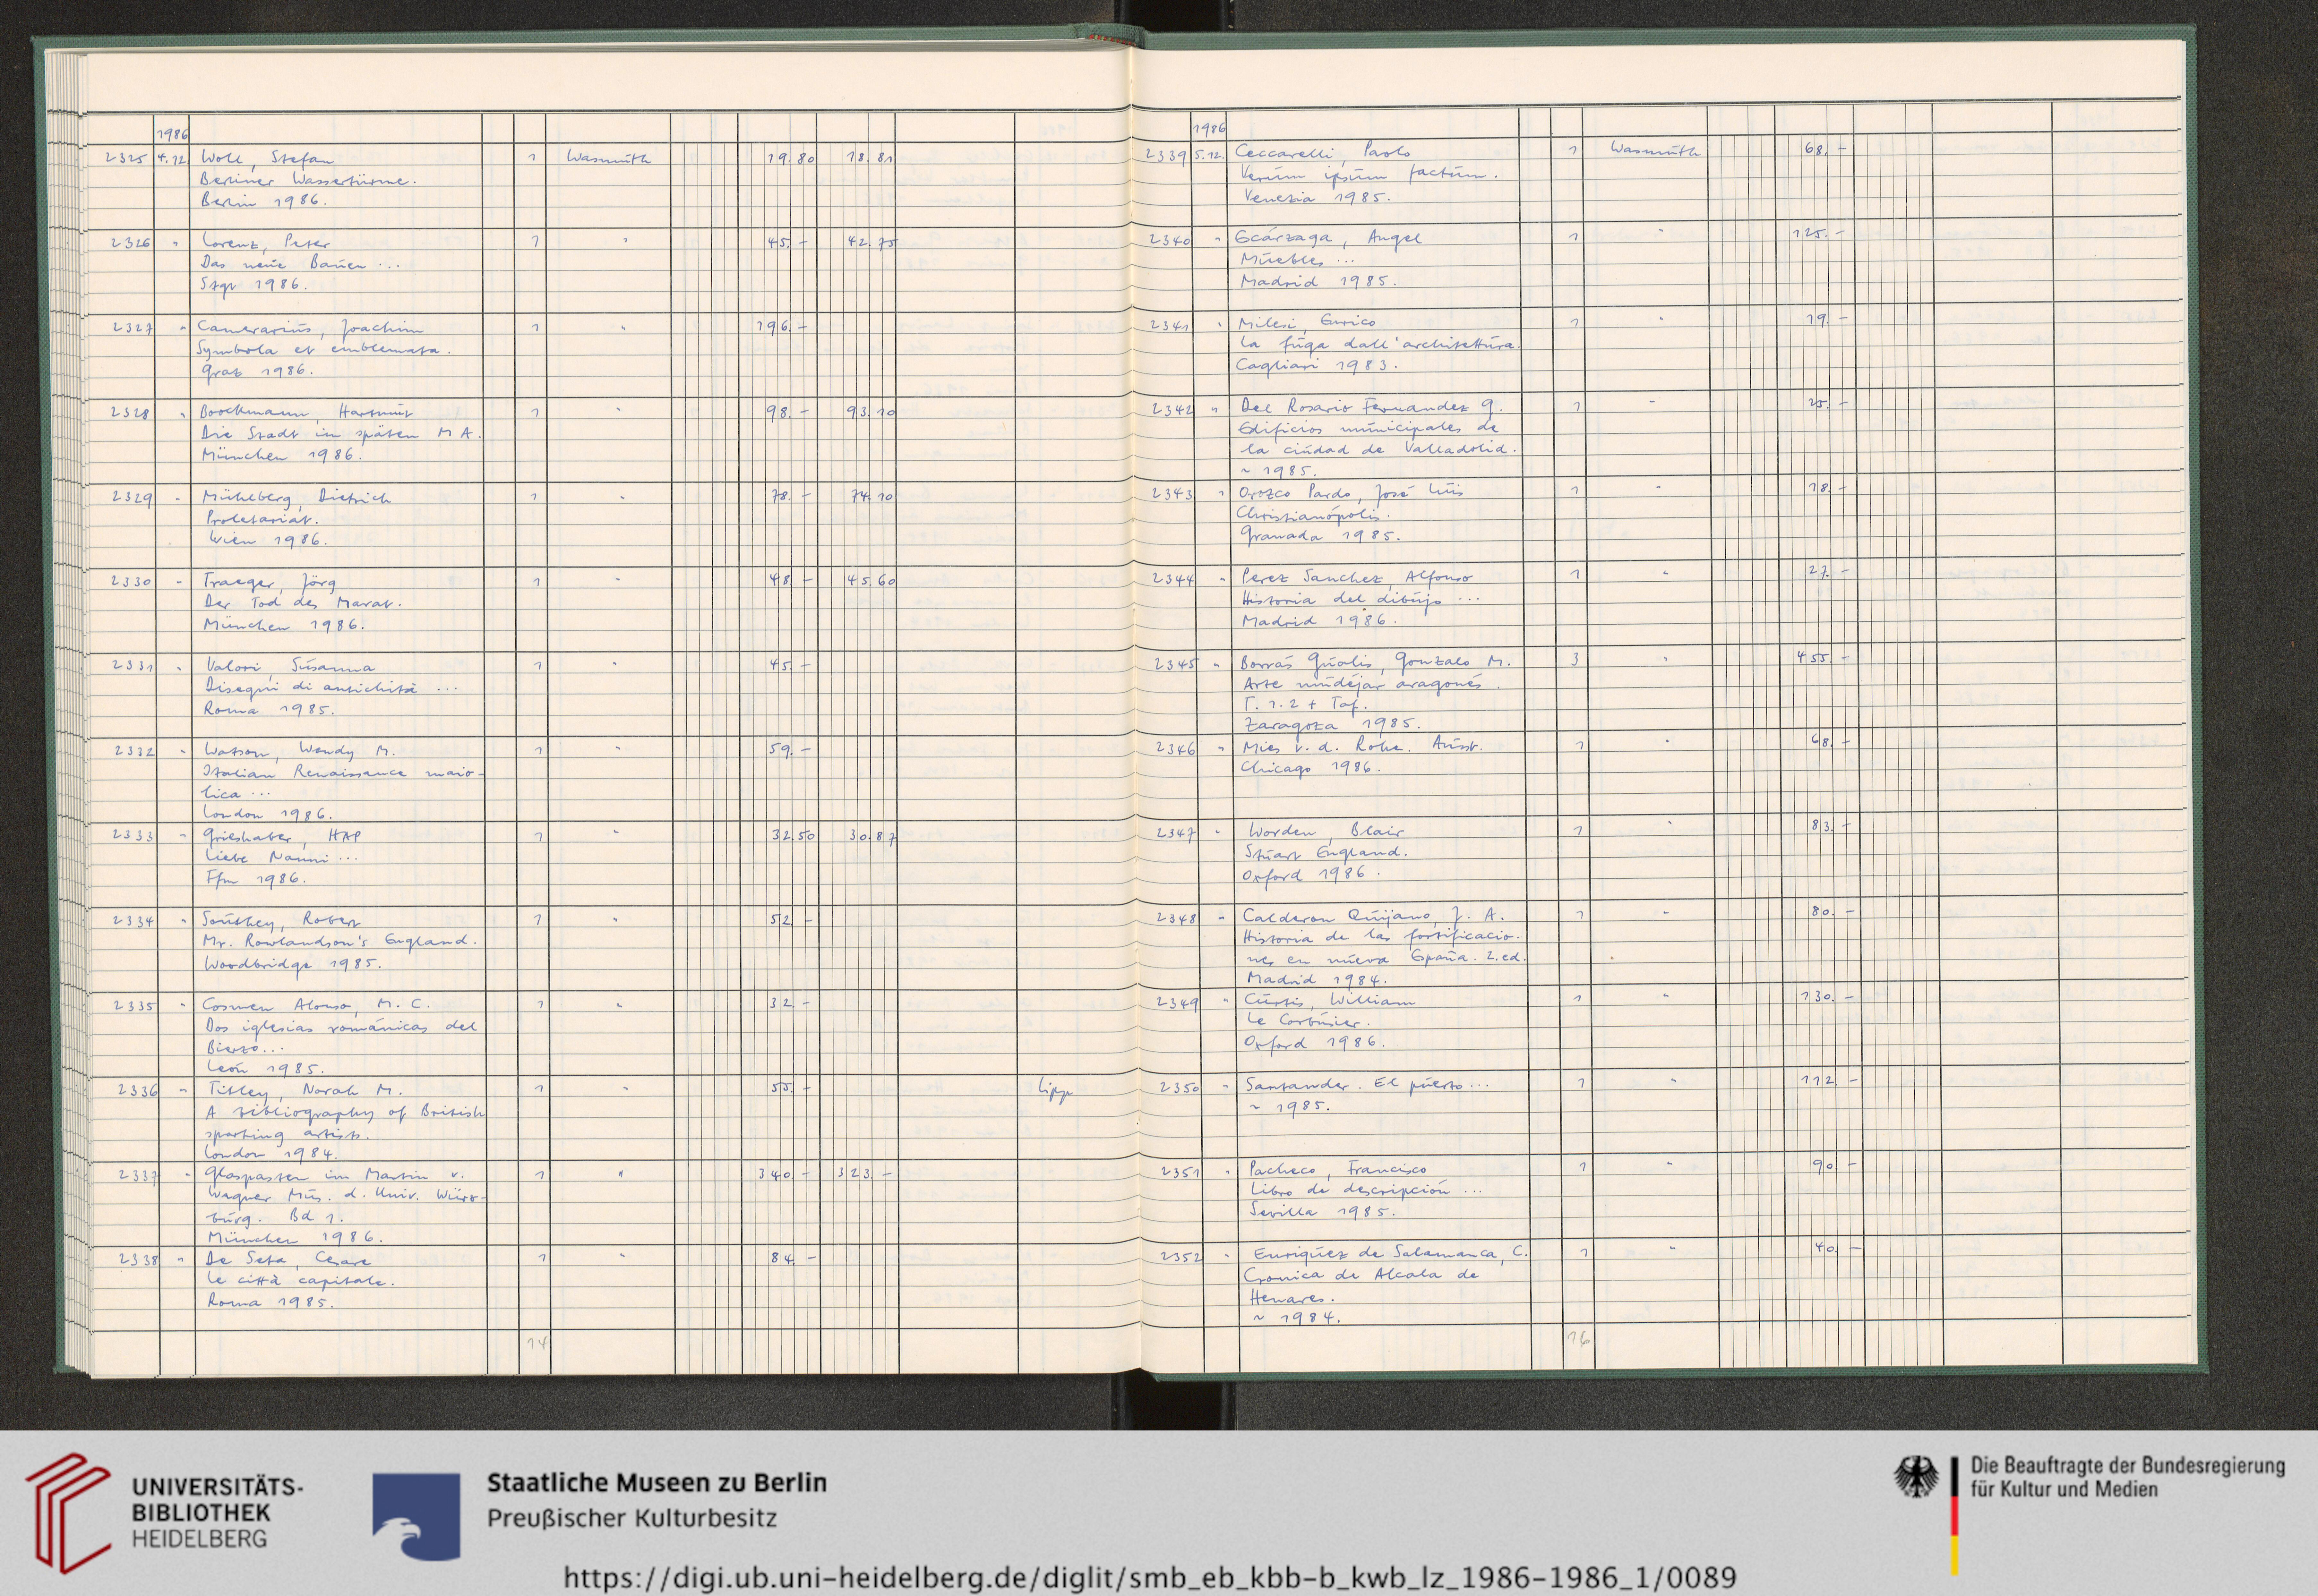 1986
2325 4.12 Woll, Stefan 1 Wasmuth 19.80 18.81
Berliner Wassertürme.
Berlin 1986.
2326 " Lorenz, Peter 1 " 45.– 42.75
Das neue Bauen ...
Stgt 1986.
2327 " Camerarius, Joachim 1 " 196.–
Symbola et emblemata.
Graz 1986.
2328 " Boockmann, Hartmut 1 " 98.– 93.10
Die Stadt im späten MA.
München 1986.
2329 " Mühlberg, Dietrich 1 " 78.– 74.10
Proletariat.
Wien 1986.
2330 " Traeger, Jörg 1 " 48.– 45.60
Der Tod des Marat.
München 1986.
2331 " Valori, Susanna 1 " 45.–
Disegni di antichità ...
Roma 1985.
2332 " Watson, Wendy M. 1 " 59.–
Italian Renaissance maio-
lica ...
London 1986.
2333 " Grieshaber, HAP 1 " 32.50 30.87
Liebe Nanni ...
Ffm 1986.
2334 " Southey, Robert 1 " 52.–
Mr. Rowlandson's England.
Woodbridge 1985.
2335 " Cosmen Alonso, M. C. 1 " 32.–
Dos iglesias románicas del
Bierzo...
León 1985.
2336 " Titley, Norah M. 1 " 55.– Lipp
A bibliography of British
sporting artists.
London 1984.
2337 " Glaspasten im Martin v. 1 " 340.– 323.–
Wagner Mus. d. Univ. Würz-
burg. Bd 1.
München 1986.
2338 " De Seta, Cesare 1 " 84.–
Le città capitale.
Roma 1985.
14
1986
2339 5.12. Ceccarelli, Paolo 1 Wasmuth 68.–
Verum ipsum factum.
Venezia 1985.
2340 " Ecárzaga, Angel 1 " 125.–
Muebles ...
Madrid 1985.
2341 " Milesi, Enrico 1 " 19.–
La fuga dall'architettura.
Cagliari 1983.
2342 " Del Rosario Fernandez G. 1 " 25.–
Edificios municipales de
la ciudad de Valladolid.
~ 1985.
2343 " Orozco Pardo, José Luis 1 " 18.–
Christianópolis.
Granada 1985.
2344 " Perez Sanchez, Alfonso 1 " 27.–
Historia del dibujo ...
Madrid 1986.
2345 " Borrás Gualis, Gonzalo M. 3 " 455.–
Arte mudéjar aragonés.
T. 1.2 + Taf.
Zaragoza 1985.
2346 " Mies v. d. Rohe. Ausst. 1 " 68.–
Chicago 1986.
2347 " Worden, Blair 1 " 83.–
Stuart England.
Oxford 1986.
2348 " Calderon Quijano, J. A. 1 " 80.–
Historia de las fortificacio-
nes en nueva España. 2.ed.
Madrid 1984.
2349 " Curtis, William 1 " 130.–
Le Corbusier.
Oxford 1986.
2350 " Santander. El puerto... 1 " 112.–
~ 1985.
2351 " Pacheco, Francisco 1 " 90.–
Libro de descripción ...
Sevilla 1985.
2352 " Enriquez de Salamanca, C. 1 " 40.–
Cronica de Alcala de
Henares.
~ 1984.
16
UNIVERSITÄTS-
BIBLIOTHEK
HEIDELBERG
Staatliche Museen zu Berlin
Preußischer Kulturbesitz
Die Beauftragte der Bundesregierung
für Kultur und Medien
https://digi.ub.uni-heidelberg.de/diglit/smb_eb_kbb-b_kwb_lz_1986-1986_1/0089